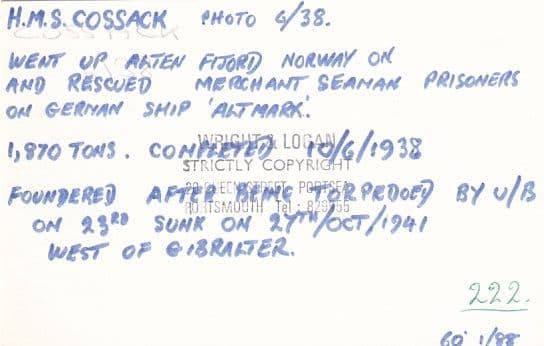 H.M.S. COSSACK PHOTO 6/38.
WENT UP ALTEN FJORD NORWAY ON
AND RESCUED MERCHANT SEAMAN PRISONERS
ON GERMAN SHIP 'ALTMARK'.
1,870 TONS. COMPLETED 10/6/1938
WRIGHT & LOGAN
STRICTLY COPYRIGHT
FOUNDERED AFTER BEING TORPEDOED BY U/B
QUEEN STREET, PORTSEA
PORTSMOUTH Tel:
ON 23RD SUNK ON 27TH/OCT/1941
WEST OF GIBRALTER.
222.
60 1/88